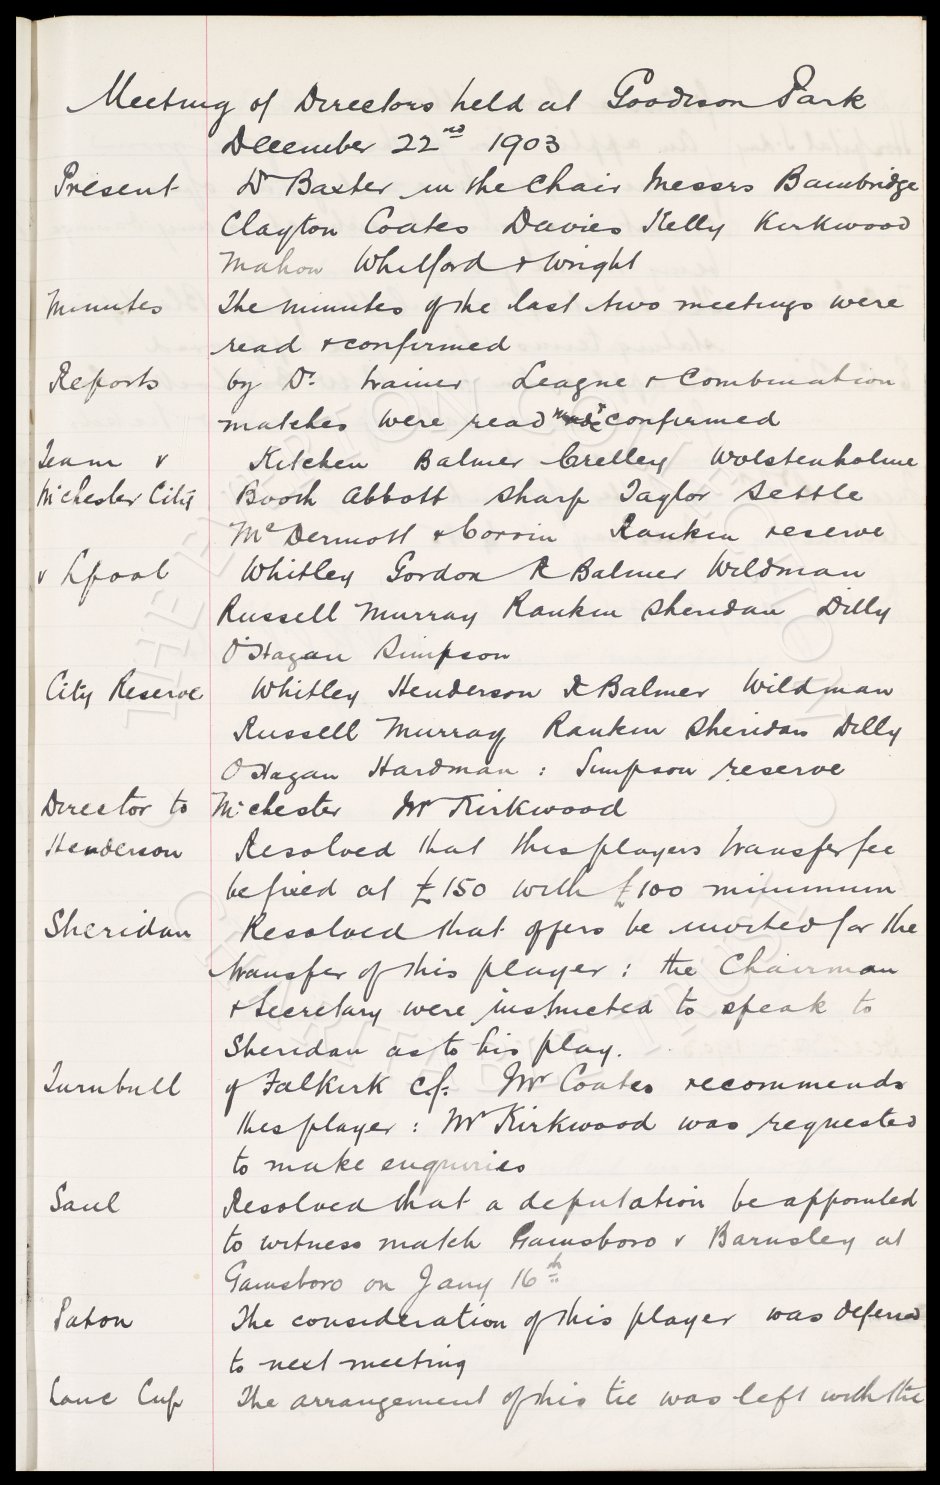 Meeting of Directors held at Goodison Park
December 22nd 1903
Present Dr Baxter in the Chair Messrs Bainbridge
Clayton Coates Davies Kelly Kirkwood
Mahon Whitford & Wright
Minutes The minutes of the last two meetings were
read & confirmed
Reports by Dr. trainer League & Combination
matches were read confirmed
Team v Kitchen Balmer Crelley Wolstenholme
M'chester City Booth Abbott Sharp Taylor Settle
McDermott & Corrin Rankin reserve
v Lpool Whitley Gordon R Balmer Wildman
Russell Murray Rankin Sheridan Dilly
O'Hagan Simpson
City Reserve Whitley Henderson R Balmer Wildman
Russell Murray Rankin Sheridan Dilly
O'Hagan Hardman : Simpson reserve
Director to M'chester Mr Kirkwood
Henderson Resolved that this players transfer fee
be fixed at £150 with £100 minimum
Sheridan Resolved that offers be invited for the
transfer of this player : the Chairman
& Secretary were instructed to speak to
Sheridan as to his play.
Turnbull of Falkirk c.f. Mr Coates recommends
this player : Mr Kirkwood was requested
to make enquiries
Saul Resolved that a deputation be appointed
to witness match Gainsboro v Barnsley at
Gainsboro on Jany 16th
Paton The consideration of this player was deferred
to next meeting
Lanc Cup The arrangement of this tie was left with the